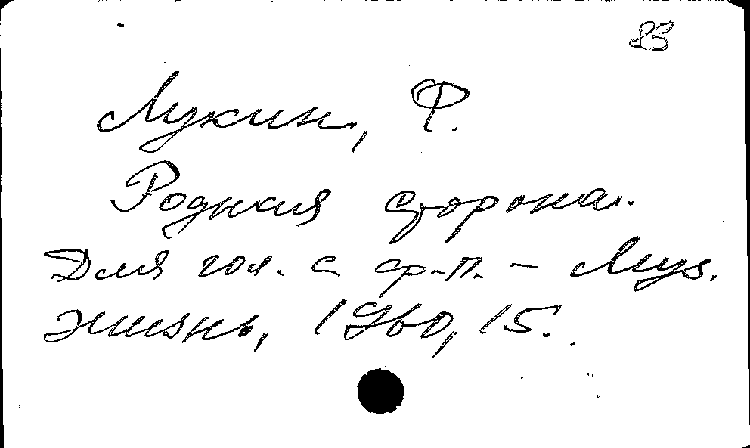 83
Лукин, Ф.
Родная сторона.
Для гол. с ф-п. – Муз.
жизнь, 1960, 15.